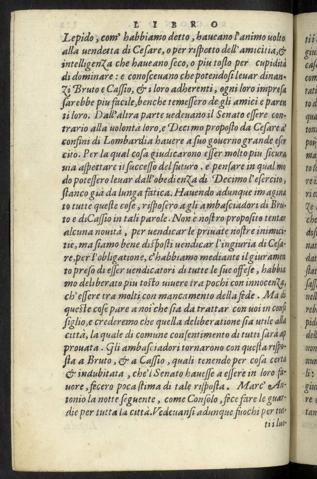 LIBRO
Lepido, com' habbiamo detto, haueano l'animo volto
alla vendetta di Cesare, o per rispetto dell'amicitia, &
intelligenza che haueano seco, o piu tosto per cupidità
di dominare: e conosceuano che potendosi leuar dinan-
zi Bruto e Caßio, & i loro adherenti, ogni loro impresa
sarebbe piu facile, benche temessero de gli amici e paren
ti loro. Dall'altra parte vedeuano il Senato essere con-
trario alla volonta loro, e Decimo proposto da Cesare a'
confini di Lombardia hauere a suo gouerno grande eser
cito. Per la qual cosa giudicarono esser molto piu sicura
via aspettare il successo del futuro, e pensare in qual mo
do potessero leuar dall'obedienza di Decimo l'esercito,
stanco già da lunga fatica. Hauendo adunque imagina
to tutte queste cose, risposero a gli ambasciadori di Bru-
to e di Caßio in tali parole. Non è nostro proposito tentar
alcuna nouità, per vendicar le priuate nostre inimici-
tie, ma siamo bene disposti vendicar l'ingiuria di Cesa-
re, per l'obligatione, c'habbiamo mediante il giuramen
to preso di esser vendicatori di tutte le sue offese, habbia
mo deliberato piu tosto viuere tra pochi con innocenza,
ch'essere tra molti con mancamento della fede. Ma di
queste cose pare a noi che sia da trattar con voi in consi
siglio, e crederemo che quella deliberatione sia vtile alla
città, la quale di comune consentimento di tutti sarà ap
prouata. Gli ambasciadori tornarono con questa rispo-
sta a Bruto, & a Caßio, quali tenendo per cosa certa
& indubitata, che'l Senato hauesse a essere in loro fa-
uore, fecero poca stima di tale risposta. Marc' An-
tonio la notte seguente, come Consolo, fece fare le guar-
die per tutta la città. Vedeuansi adunque fuochi per tut-
ti i luo-